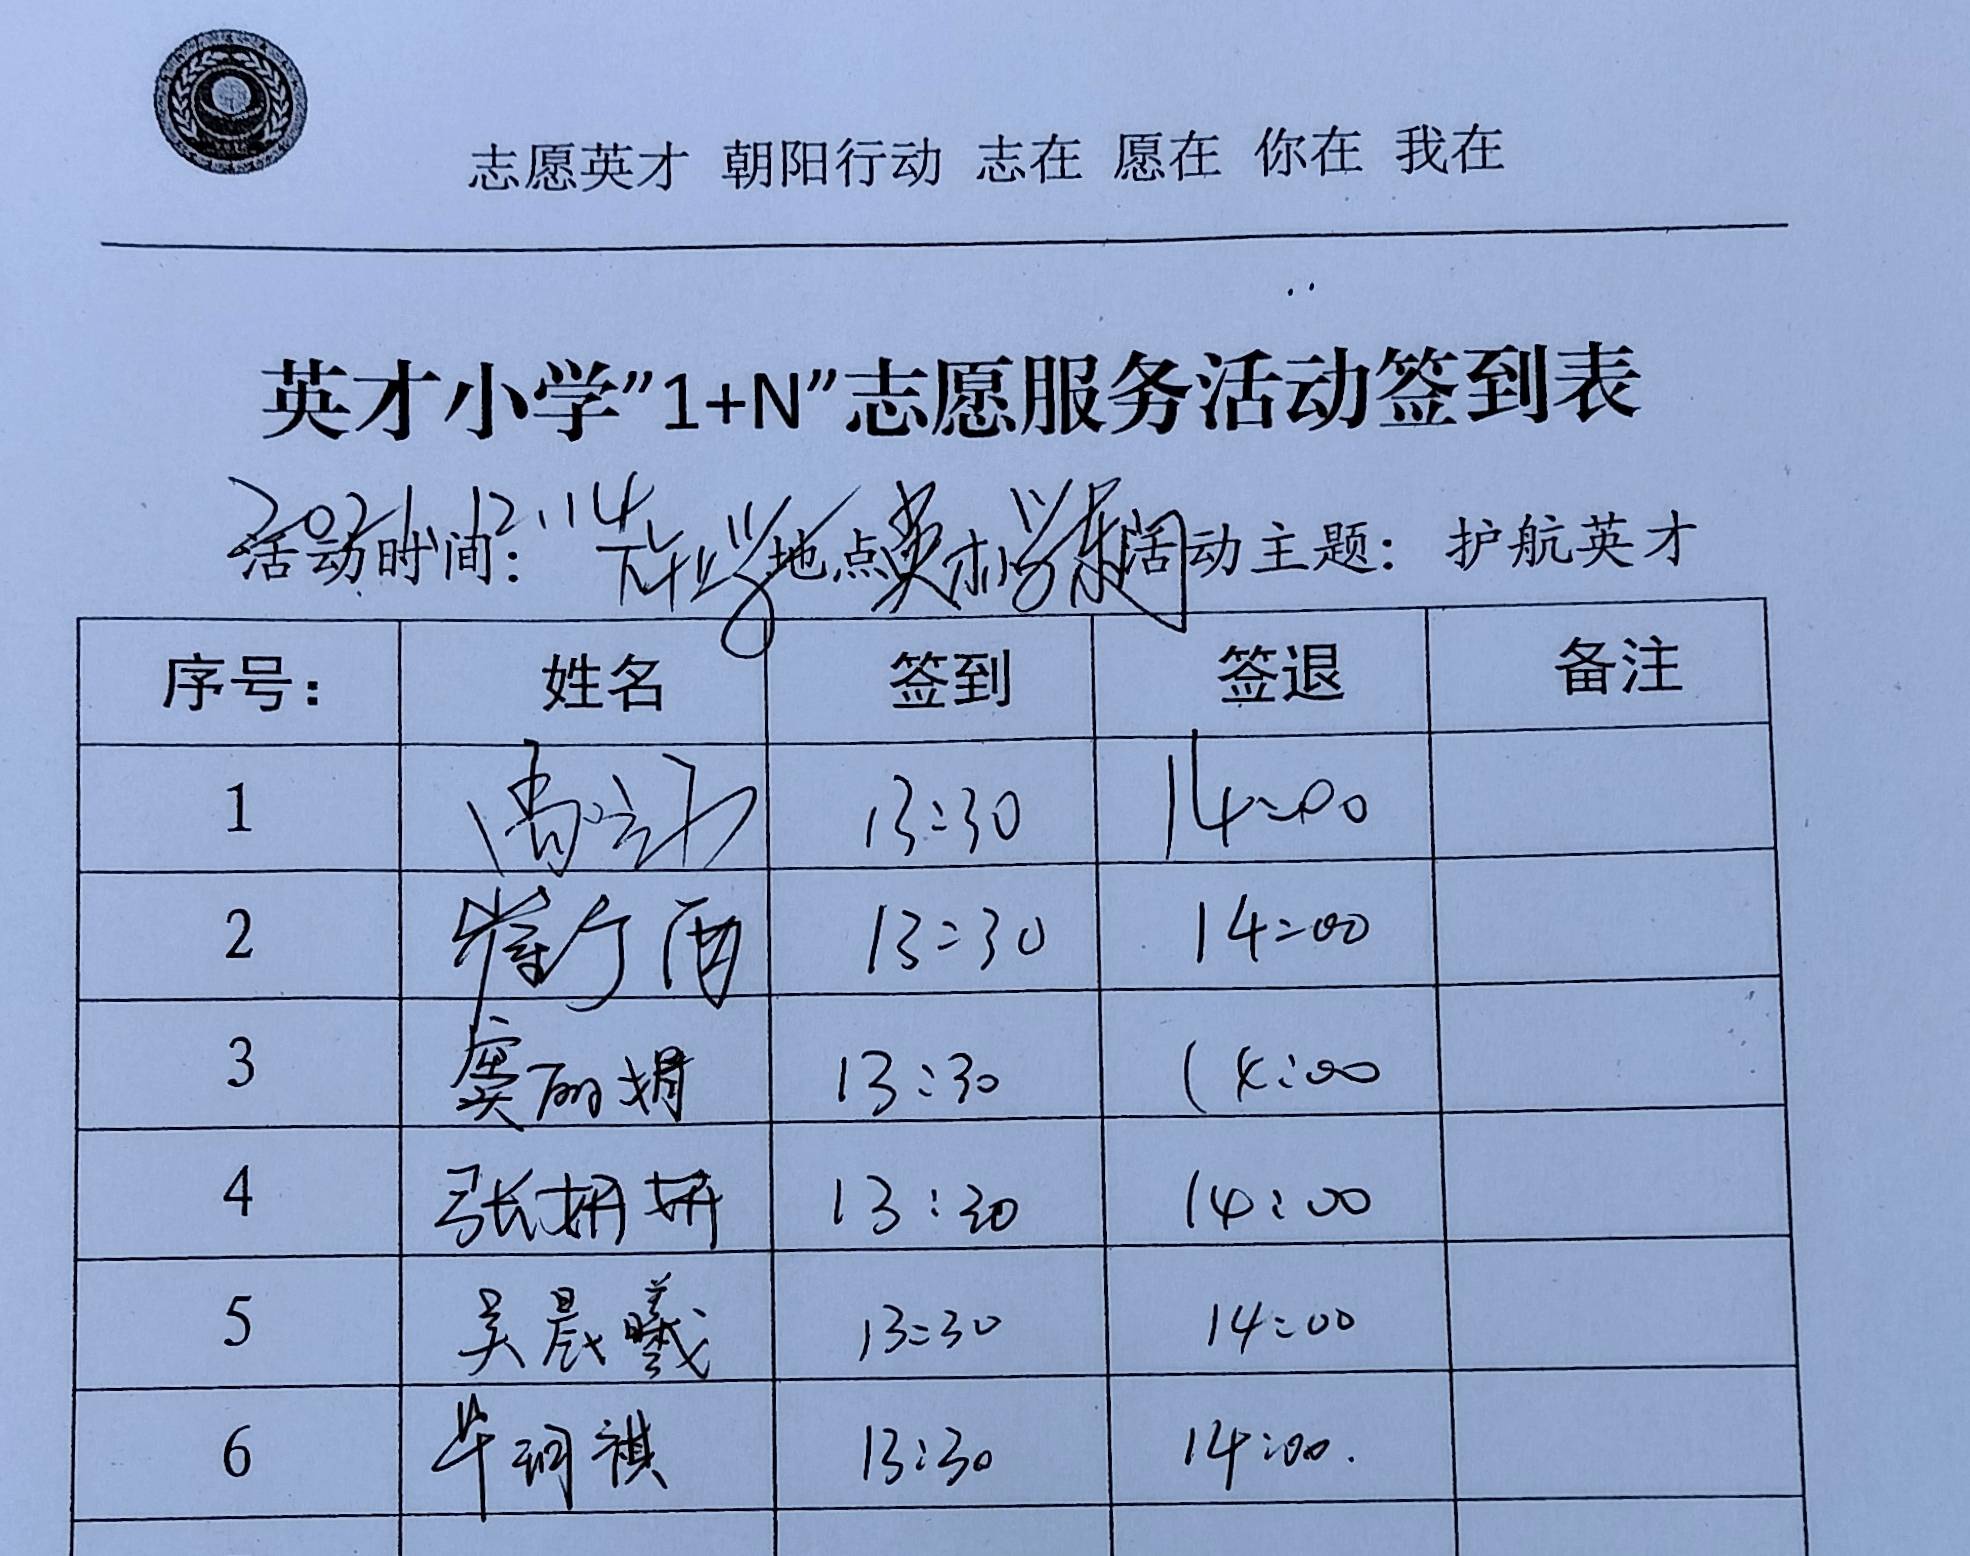 志愿英才 朝阳行动 志在 愿在 你在 我在
英才小学"1+N"志愿服务活动签到表
2021.12.14
活动时间: 下午上学 地点 英才小学东门 活动主题: 护航英才
序号: 姓名 签到 签退 备注
1 13:30 14:00
2 13:30 14:00
3 窦丽娟 13:30 14:00
4 张妍妍 13:30 14:00
5 吴晨曦 13:30 14:00
6 13:30 14:00.